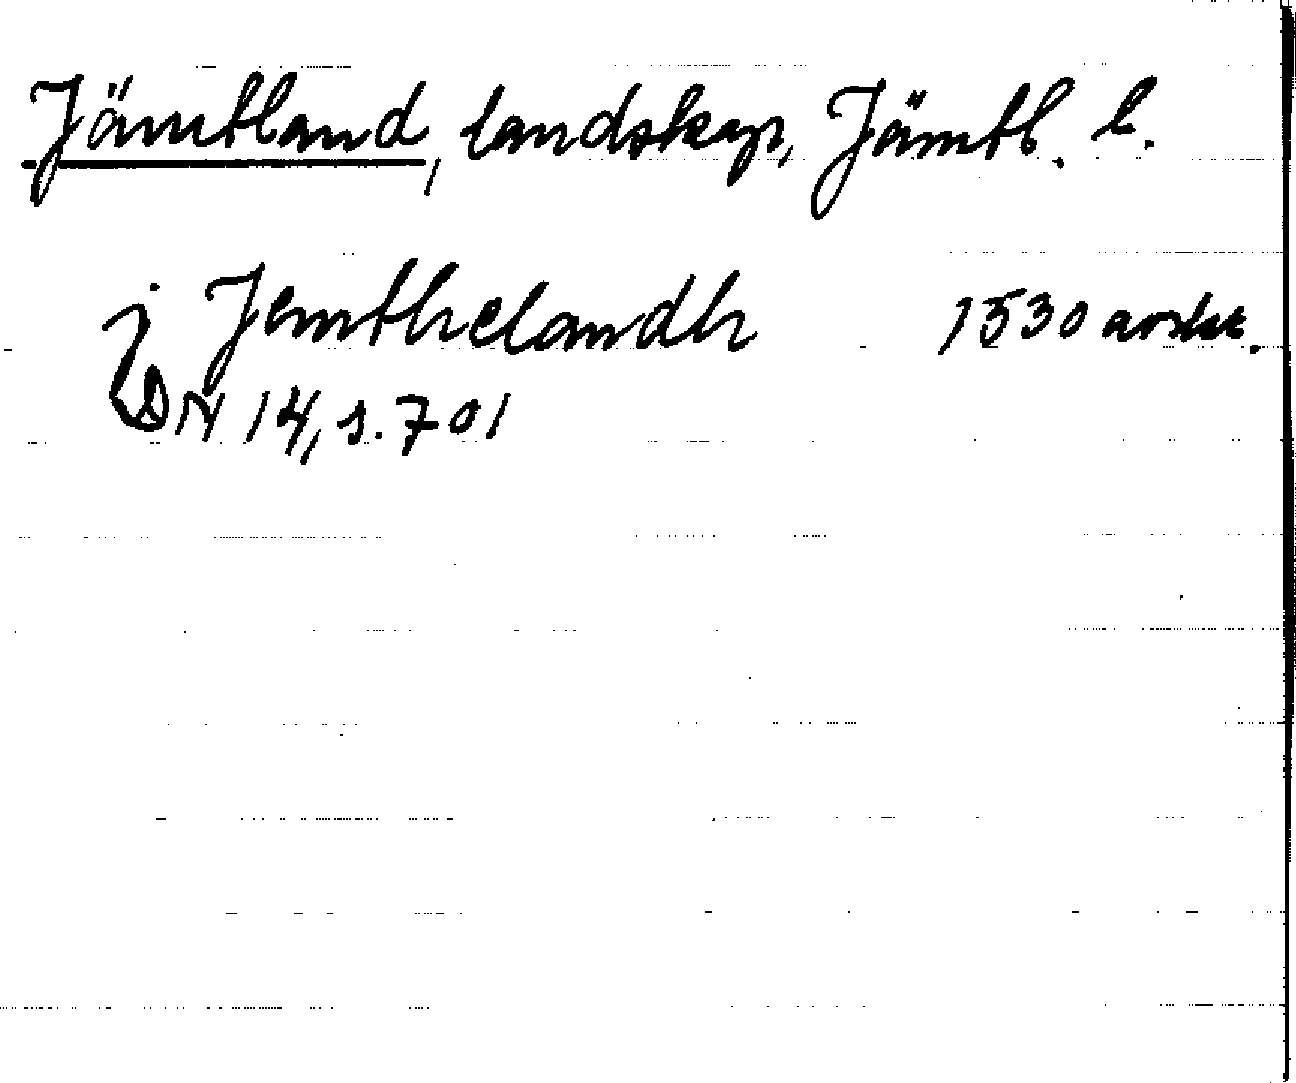 Jämtland, landskap, Jämtl. l.
j Jemthelandh 1530 avskr.
DN 14, s. 701